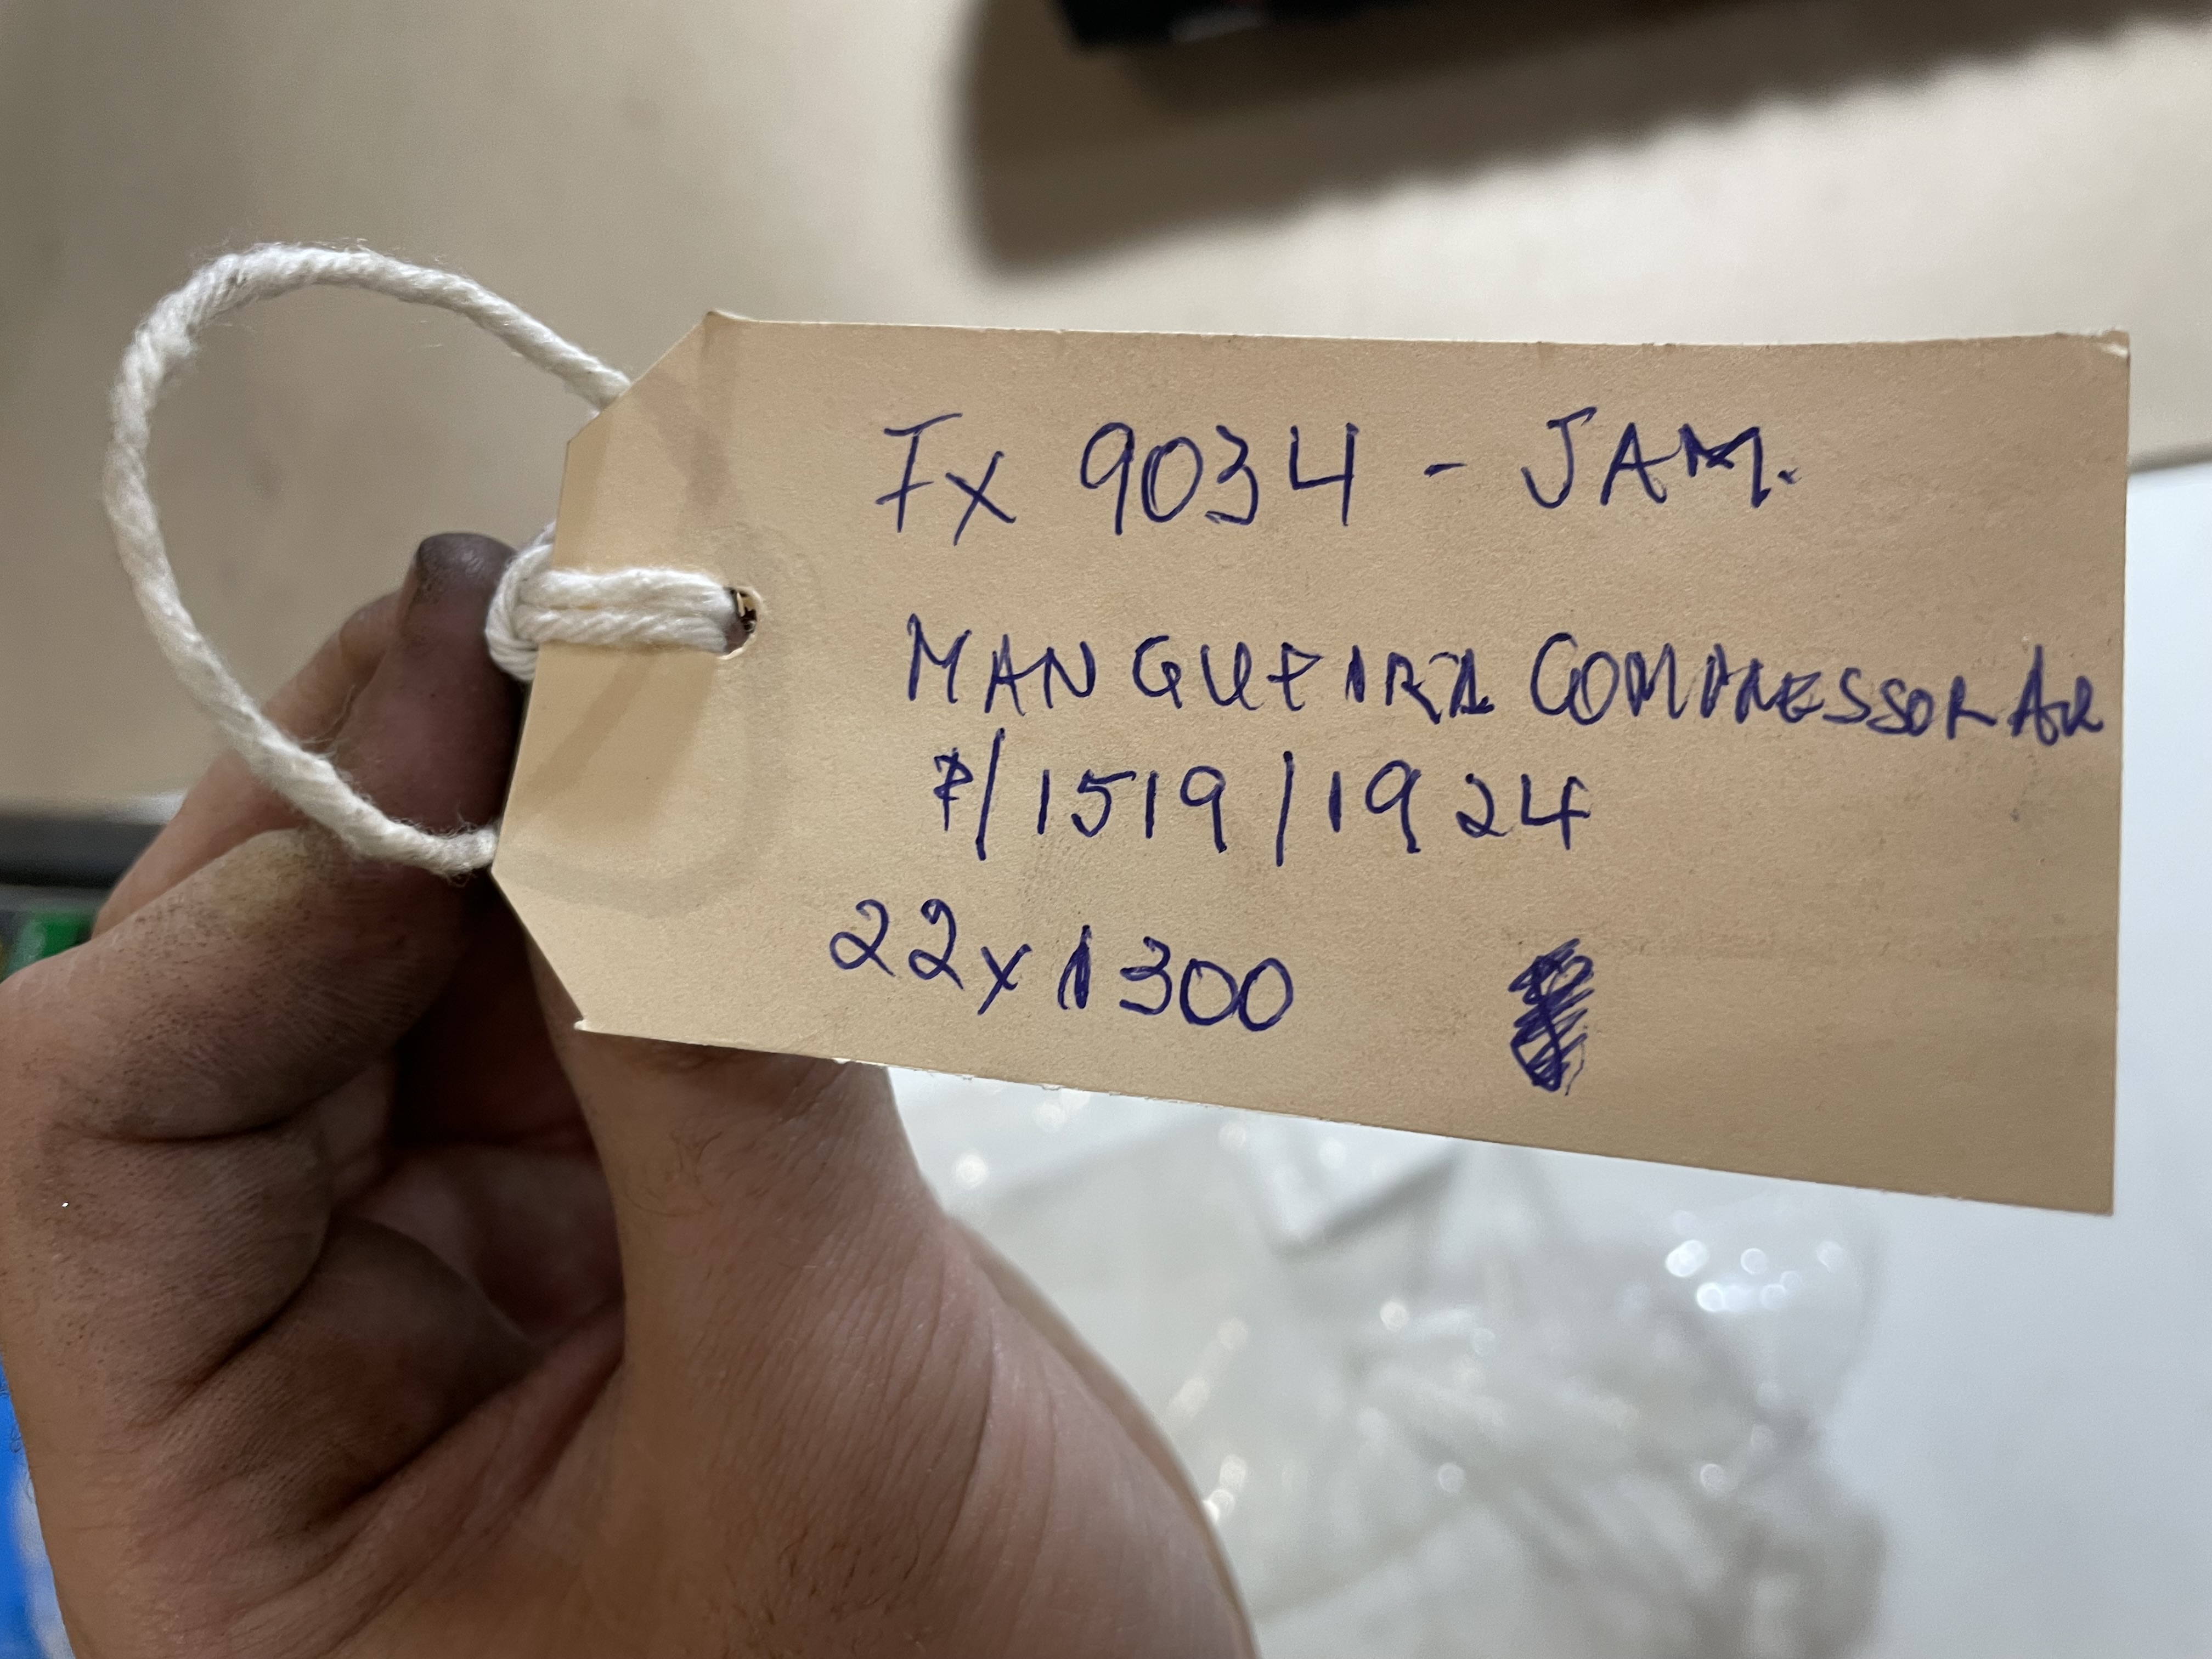 FX 9034 - JAM.
MANGUEIRA COMPRESSOR AR
P/1519/1924
22x1300